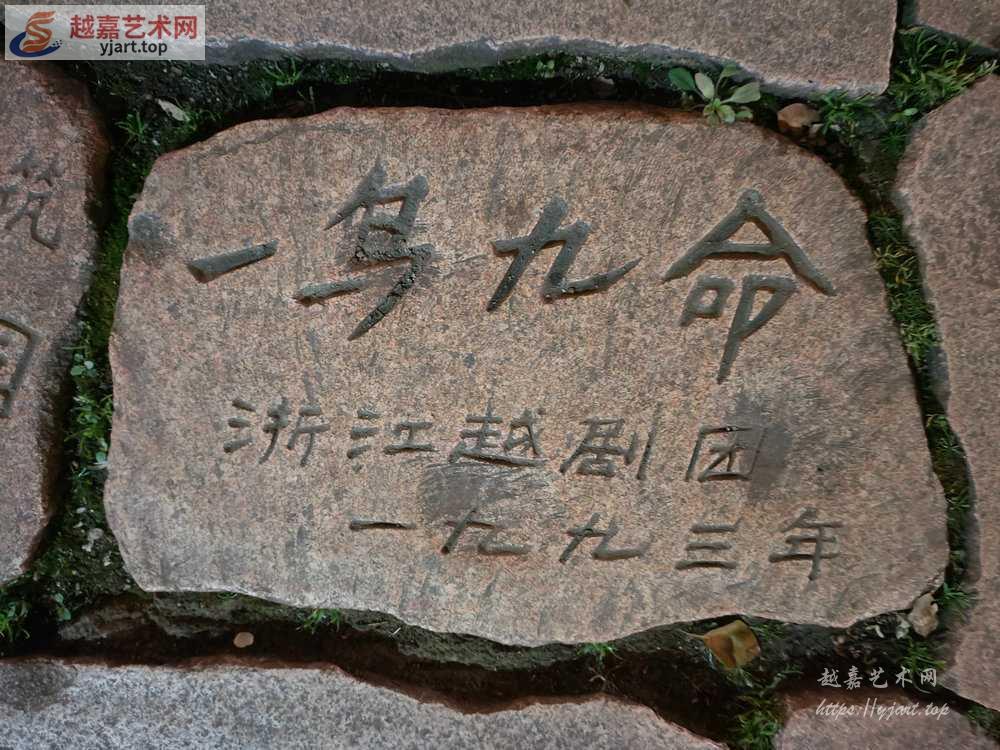 越嘉艺术网
yjart.top
筑
一鸟九命
浙江越剧团
一九九三年
越嘉艺术网
https://yjart.top